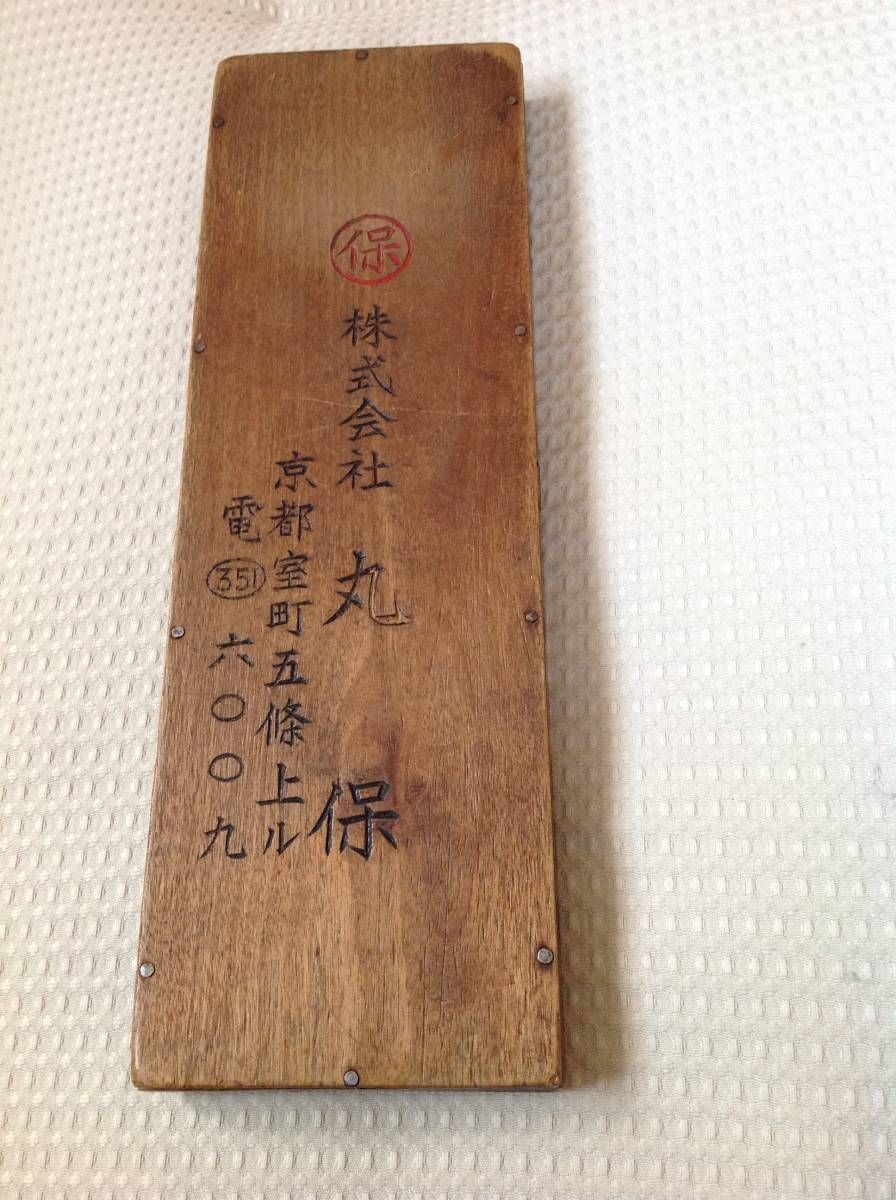 保
株式会社 丸保
京都室町五條上ル
電 351 六〇〇九